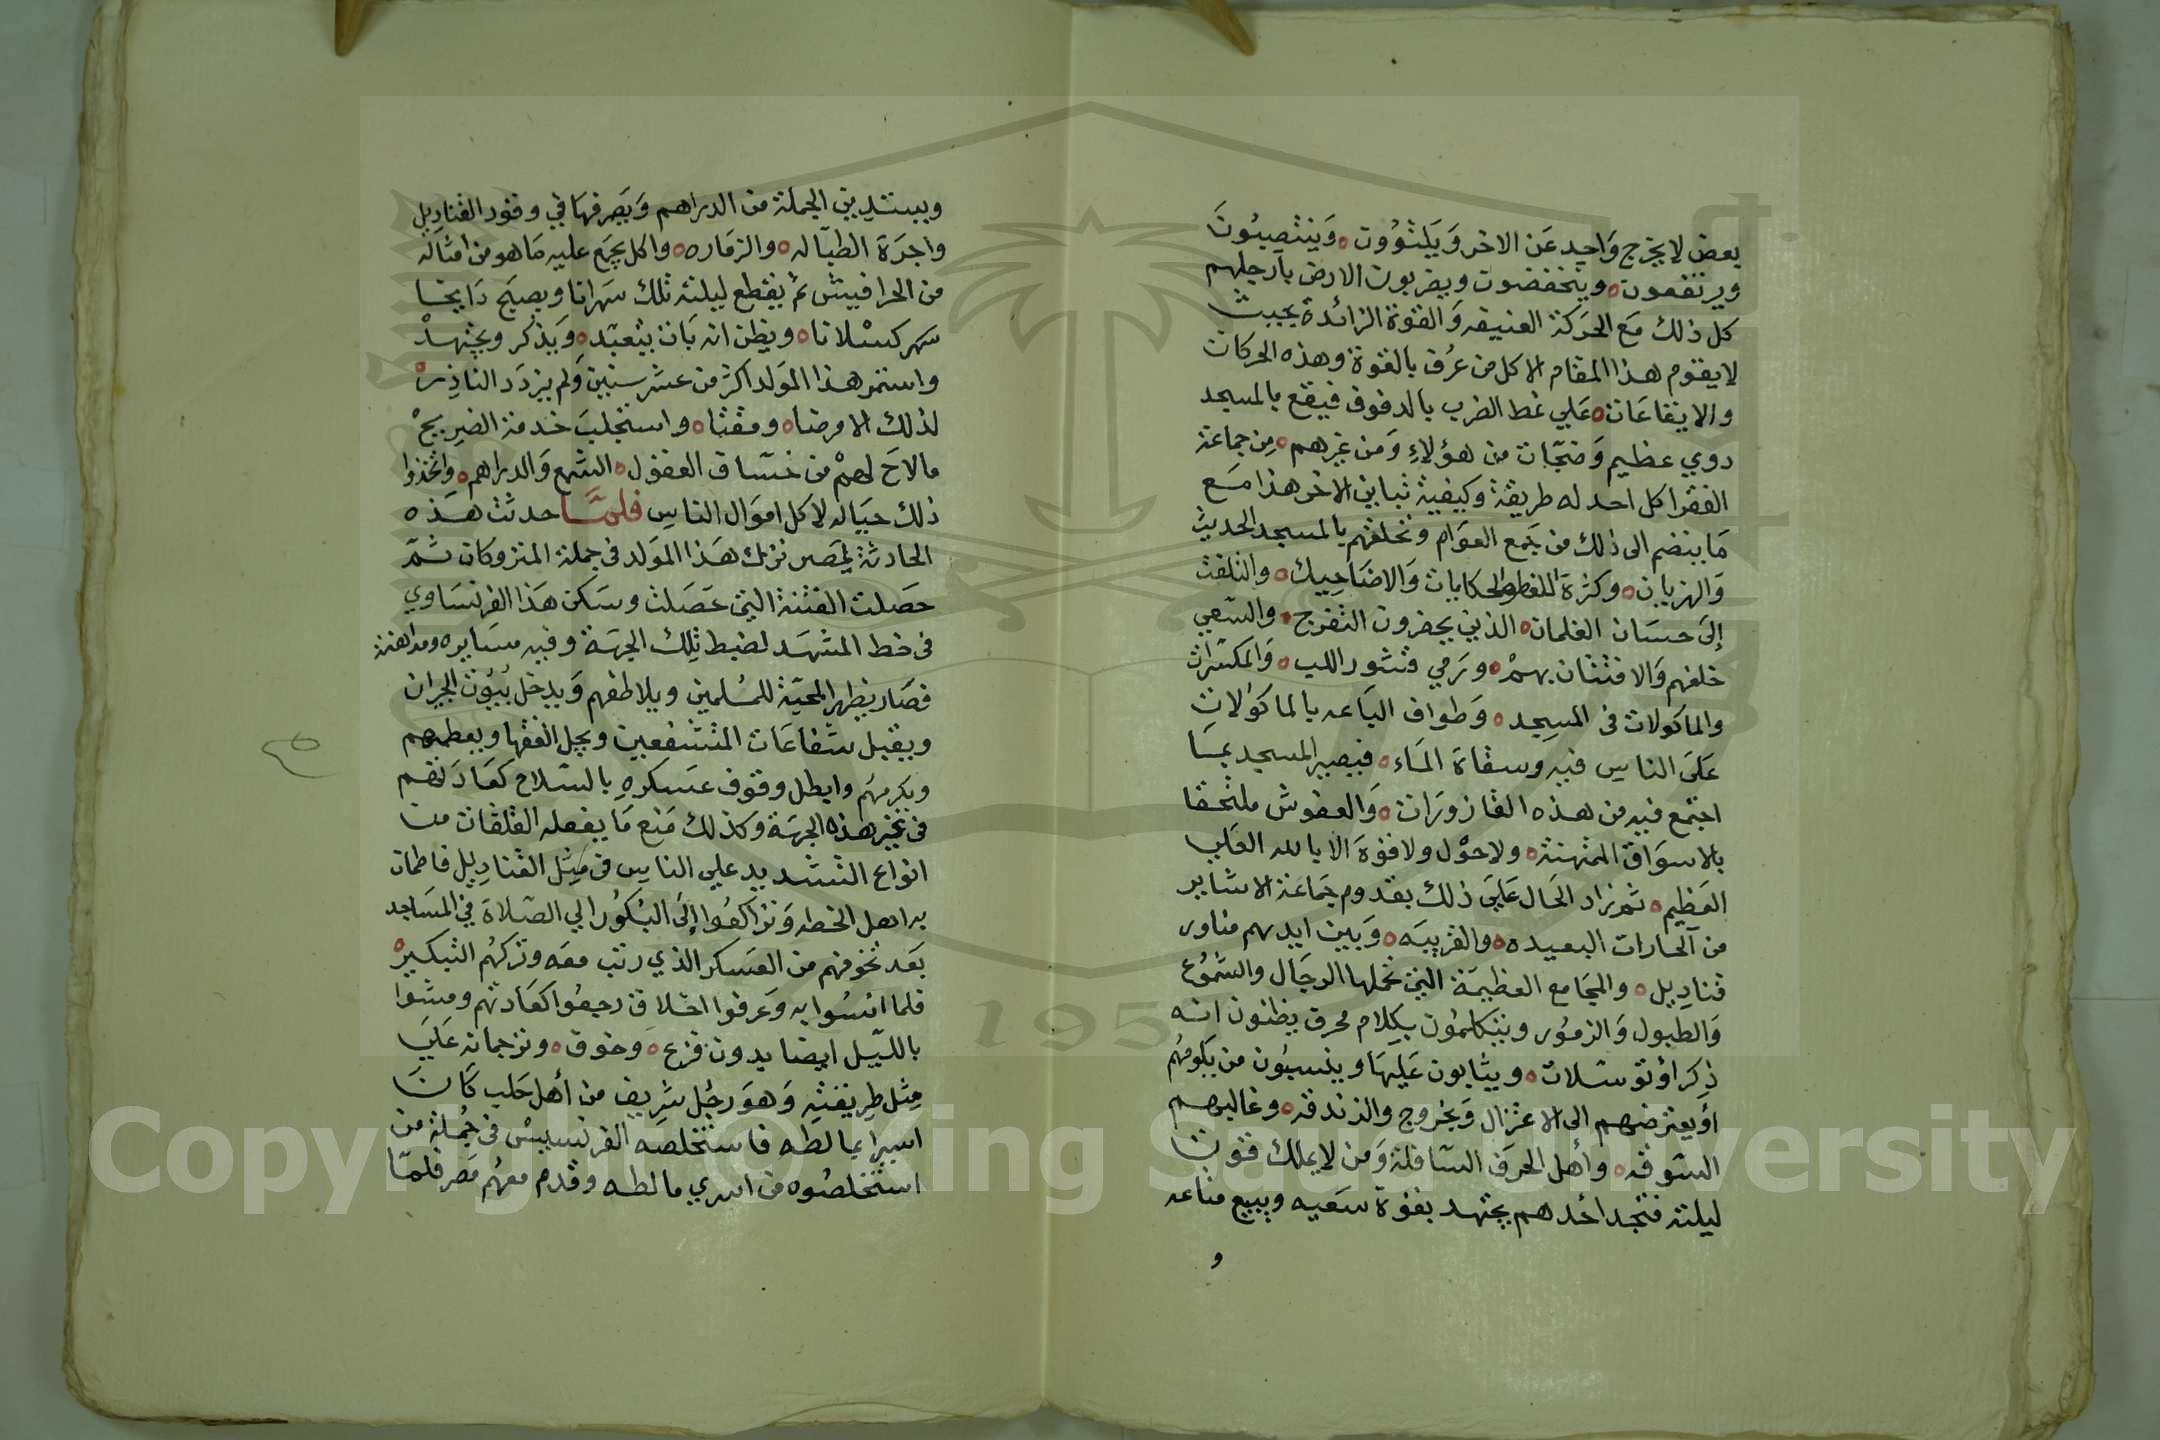 بعض لا يخرج وَاحِد عَن الاخر وَيَلتوُون ٥ وَينتصِبُونَ
ويرتفعون ٥ وينخفضون ويضربون الارض بأرجلهم
كل ذلك مَع الحَركة العنيفه وَالقوة الزائدة بحيث
لا يقوم هذا المقام الا كل من عُرف بالقوة وهذه الحركات
والايقاعات ٥ عَلي نمط الضرب بالدفوف فيقع بالمسجد
دوي عظيم وَضجّات من هؤلاءِ وَمن غيرهم ٥ مِن جماعة
الفقرا كل احد له طريقة وكيفية تباين الاخر هذا مَع
مَا ينضم الى ذلك من جَمع العوَام وتحلقهم بالمسجد للحديث
وَالهزيان ٥ وكثرة اللغط والحكايات وَالاضَاحِيك ٥ والتلفت
إلىَ حسَان الغلمان ٥ الذين يحضرون التفرج ٥ والسّعي
خلفهم وَالافتتان بهمْ ٥ ورَمي قشور اللب ٥ وَالمكسّرات
والماكولات فى المسجد ٥ وَطواف البَاعه بالماكوُلاتِ
عَلىَ الناس فيه وسقاة المَاء ٥ فيصير المسجد بمَا
اجتمع فيه من هذه القاذورَات ٥ وَالعفوش ملتحقا
بالاسوَاق الممتهنة ٥ ولا حوْل ولا قوةَ الا بالله العَلي
العَظيم ٥ ثم زاد الحَال عَلىَ ذلك بقدوم جَمَاعَة الاشاير
من الحارات البعيده ٥ والقريبَه ٥ وَبين ايديهم مناور
قنادِيل ٥ والمجَامع العَظيمَة التي تحملها الرجَال والشمُوع
وَالطبول وَالزموُر ويتكلموُن بكلام محرف يظنون انه
ذِكر أو توسّلات ٥ ويثابون عَليهَا وينسبُون من يَلومُهُم
أو يعترضهم الى الاعتزال وَيخروج والزندقه ٥ وغالبهم
السّوقه ٥ وأهل الحرَف السّافلة وَمن لا يملك قوت
ليلته فتجد أحدهم يجتهد بقوة سَعيه ويبيع متاعه
و
ويستدين الجملة من الدراهم وَيَصرفهَا في وقود القنادِيل
واجرَة الطبّاله ٥ والزمّاره ٥ واكل يجمع عليه مَا هو من امثاله
من الحرافيش ثم يقطع ليلته تلك سَهرانا ويصبَح دَايخا
سهر كسْلانا ٥ ويظن انه بَات يتعبّد ٥ وَيذكر ويجتهدْ
واستمر هذا الموَلد اكثر من عشر سنين وَلم يزدَد الناذِر ٥
لذلك الا مرضا ٥ ومقتا ٥ واستجلبَ خدمَة الضريحْ
مالاحَ لهمْ من خسّاف العقول ٥ الشمع وَالدراهم ٥ وَاتخذوا
ذلك حبَاله لاكل اموَال الناس فلمَّا حدثت هَذه
الحادثة بمَصر ترك هَذا الموَلد في جملة المتروكات ثمّ
حصَلت الفتنة التي حَصَلت وسَكن هَذا الفرنسَاوي
فى خط المشهَد لضبط تِلك الجهَة وفيه مسَايره ومداهنة
فصَار يظهر المحبّة للمُسلمين ويلاطفهم وَيدخل بُيُوت الجيران
ويقبل شفاعَات المتشفعين ويجل الفقها ويعظمهم
ويكرمهُم وابطل وقوف عسَكرهِ بالسّلاح كعَادَتهم
فى غير هذه الجهَة وكذلك مَنع مَا يفعله القلقات من
انواع التشديد علي الناس فى مِثل القنادِيل فاطمان
به اهل الخطه وَتراكعُوا إلىَ البُكوُر الي الصّلاة في المسَاجد
بَعد تخوفهم من العَسكر الذي رتب معَه وتركهُم التبكير ٥
فلما انسُوا به وَعرفوا اخلاقه رجعُوا كعَادتهم ومشوا
بالليّل ايضا بدون فزع ٥ وخوف ٥ وترجمانه عَلىَ
مِثل طِريقتِه وَهوَ رجُل شرِيف من أهل حَلب كَانَ
اسيرا بمالطه فاستخلصه الفرنسيس في جُملة من
استخلصُوه من اسري مالطه وقدم معهُم مَصر فلمّا